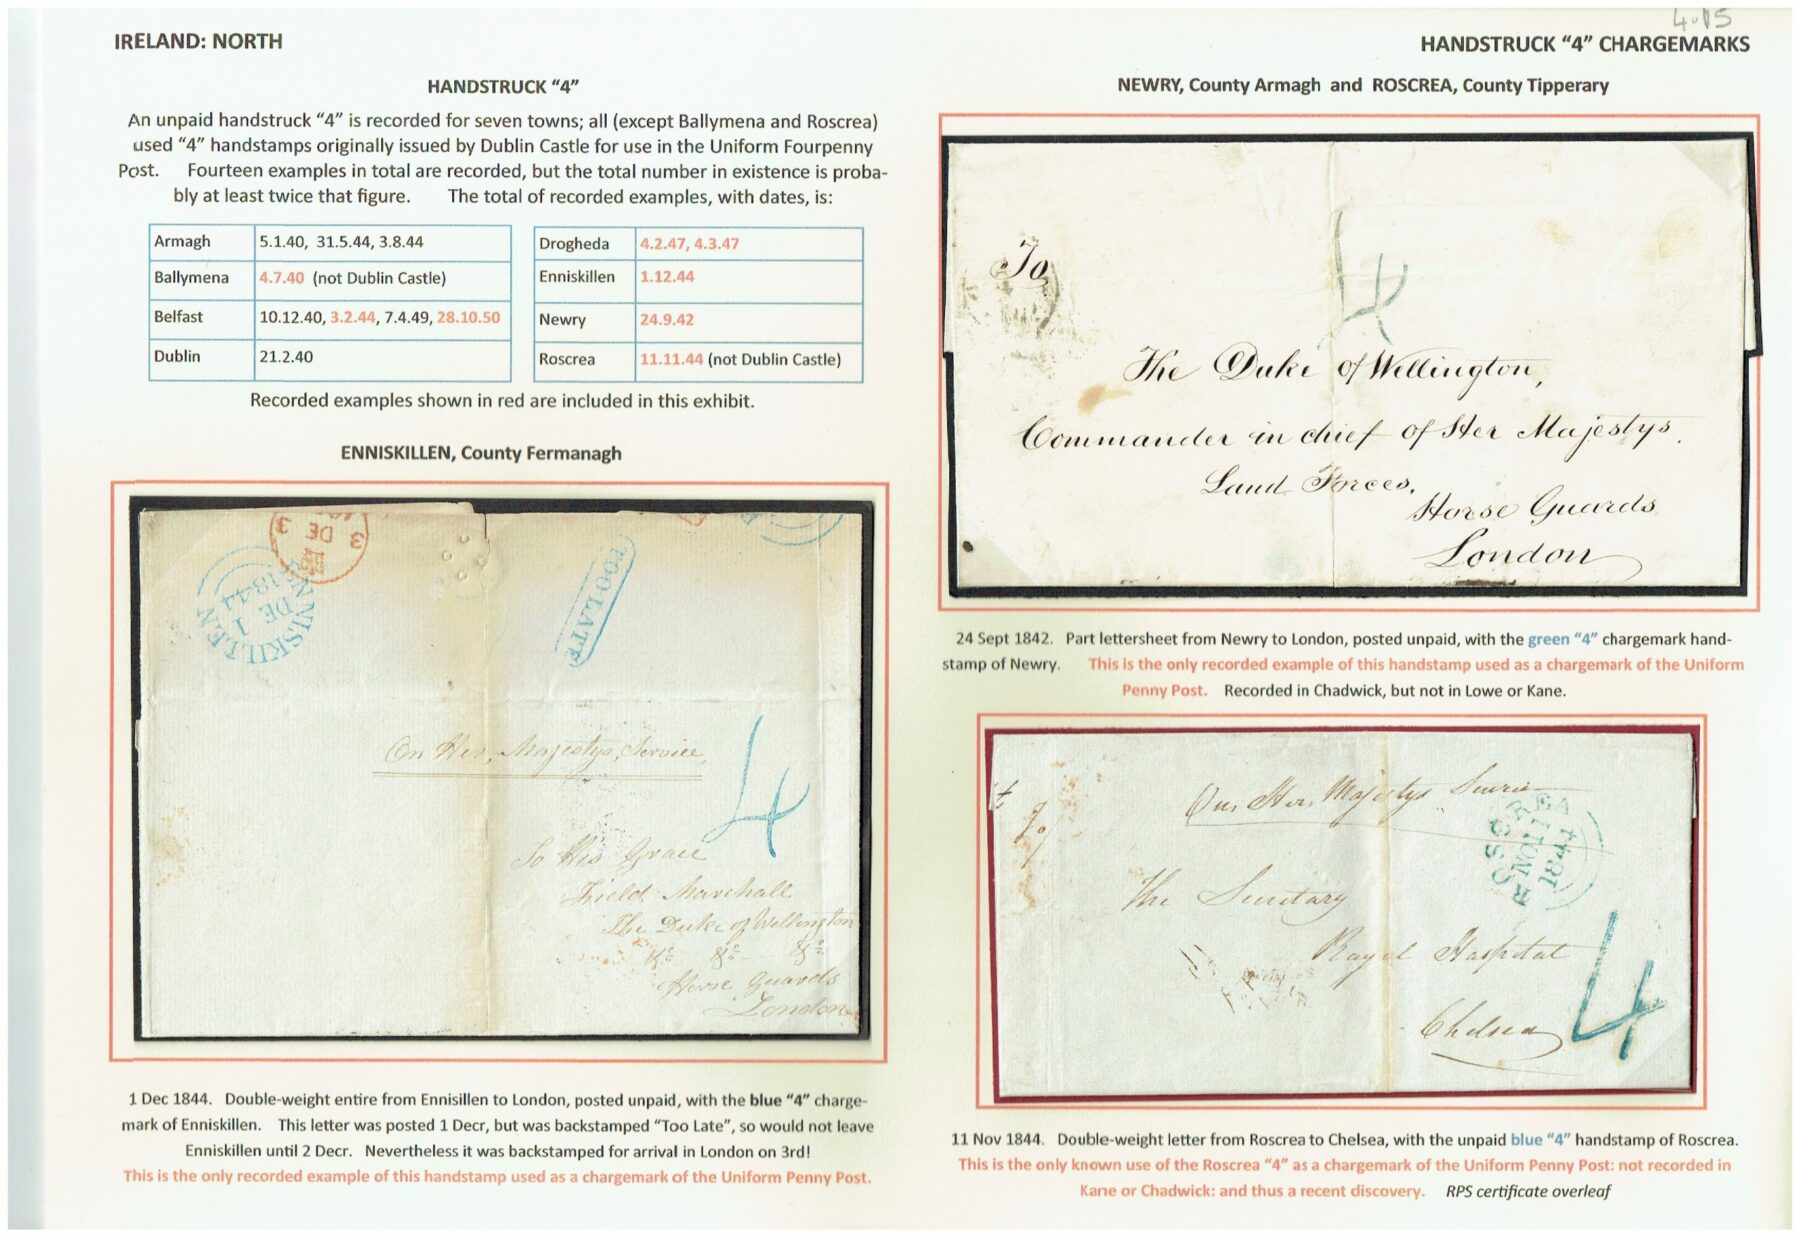 4.15
IRELAND: NORTH
HANDSTRUCK “4” CHARGEMARKS
HANDSTRUCK “4”
An unpaid handstruck “4” is recorded for seven towns; all (except Ballymena and Roscrea)
used “4” handstamps originally issued by Dublin Castle for use in the Uniform Fourpenny
Post. Fourteen examples in total are recorded, but the total number in existence is proba-
bly at least twice that figure. The total of recorded examples, with dates, is:
Armagh 5.1.40, 31.5.44, 3.8.44
Ballymena 4.7.40 (not Dublin Castle)
Belfast 10.12.40, 3.2.44, 7.4.49, 28.10.50
Dublin 21.2.40
Drogheda 4.2.47, 4.3.47
Enniskillen 1.12.44
Newry 24.9.42
Roscrea 11.11.44 (not Dublin Castle)
Recorded examples shown in red are included in this exhibit.
ENNISKILLEN, County Fermanagh
3 DE 3
ENNISKILLEN
DE 1
1844
TOO LATE
On Her Majestys Service
4
To His Grace
Field Marshall
The Duke of Wellington
&c &c &c
Horse Guards
London
1 Dec 1844. Double-weight entire from Ennisillen to London, posted unpaid, with the blue “4” charge-
mark of Enniskillen. This letter was posted 1 Decr, but was backstamped “Too Late”, so would not leave
Enniskillen until 2 Decr. Nevertheless it was backstamped for arrival in London on 3rd!
This is the only recorded example of this handstamp used as a chargemark of the Uniform Penny Post.
NEWRY, County Armagh and ROSCREA, County Tipperary
To
4
The Duke of Wellington,
Commander in chief of Her Majestys
Land Forces,
Horse Guards
London
24 Sept 1842. Part lettersheet from Newry to London, posted unpaid, with the green “4” chargemark hand-
stamp of Newry. This is the only recorded example of this handstamp used as a chargemark of the Uniform
Penny Post. Recorded in Chadwick, but not in Lowe or Kane.
On Her Majestys Service
To
ROSCREA
NO 11
1844
The Secretary
Royal Hospital
Chelsea
4
11 Nov 1844. Double-weight letter from Roscrea to Chelsea, with the unpaid blue “4” handstamp of Roscrea.
This is the only known use of the Roscrea “4” as a chargemark of the Uniform Penny Post: not recorded in
Kane or Chadwick: and thus a recent discovery. RPS certificate overleaf